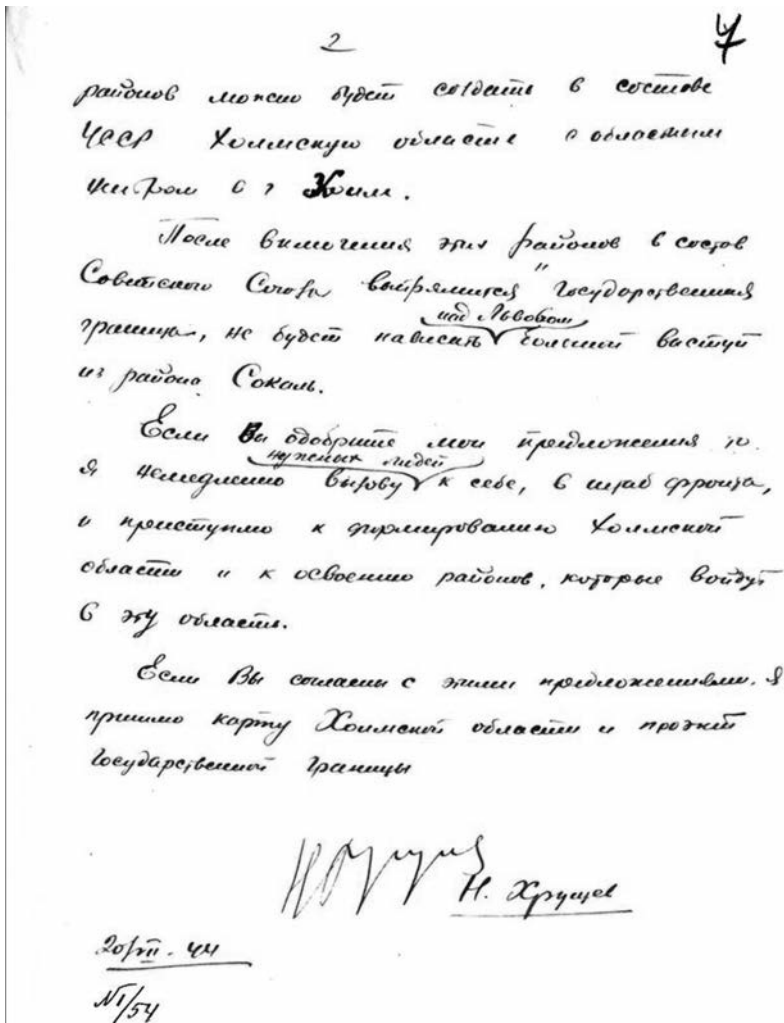 2
7
районов можно будет создать в составе
УССР Холмскую область с областным
центром в г Холм.
После включения этих районов в состав
Советского Союза выпрямится Государственная
над Львовом
граница, не будет нависать большой выступ
из района Сокаль.
Если Вы одобрите мои предложения то
нужных людей
я немедленно вызову к себе, в штаб фронта,
и приступлю к формированию Холмской
области и к освоению районов, которые войдут
в эту область.
Если Вы согласны с этими предложениями. Я
пришлю карту Холмской области и проэкт
Государственной границы
Н. Хрущев
20/VII-44
№1/54